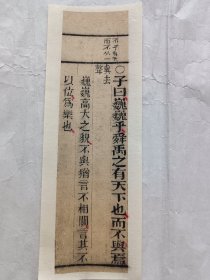 ○子曰巍巍乎舜禹之有天下也而不與焉
巍巍高大之貌不與猶言不相關言其不
以位爲樂也